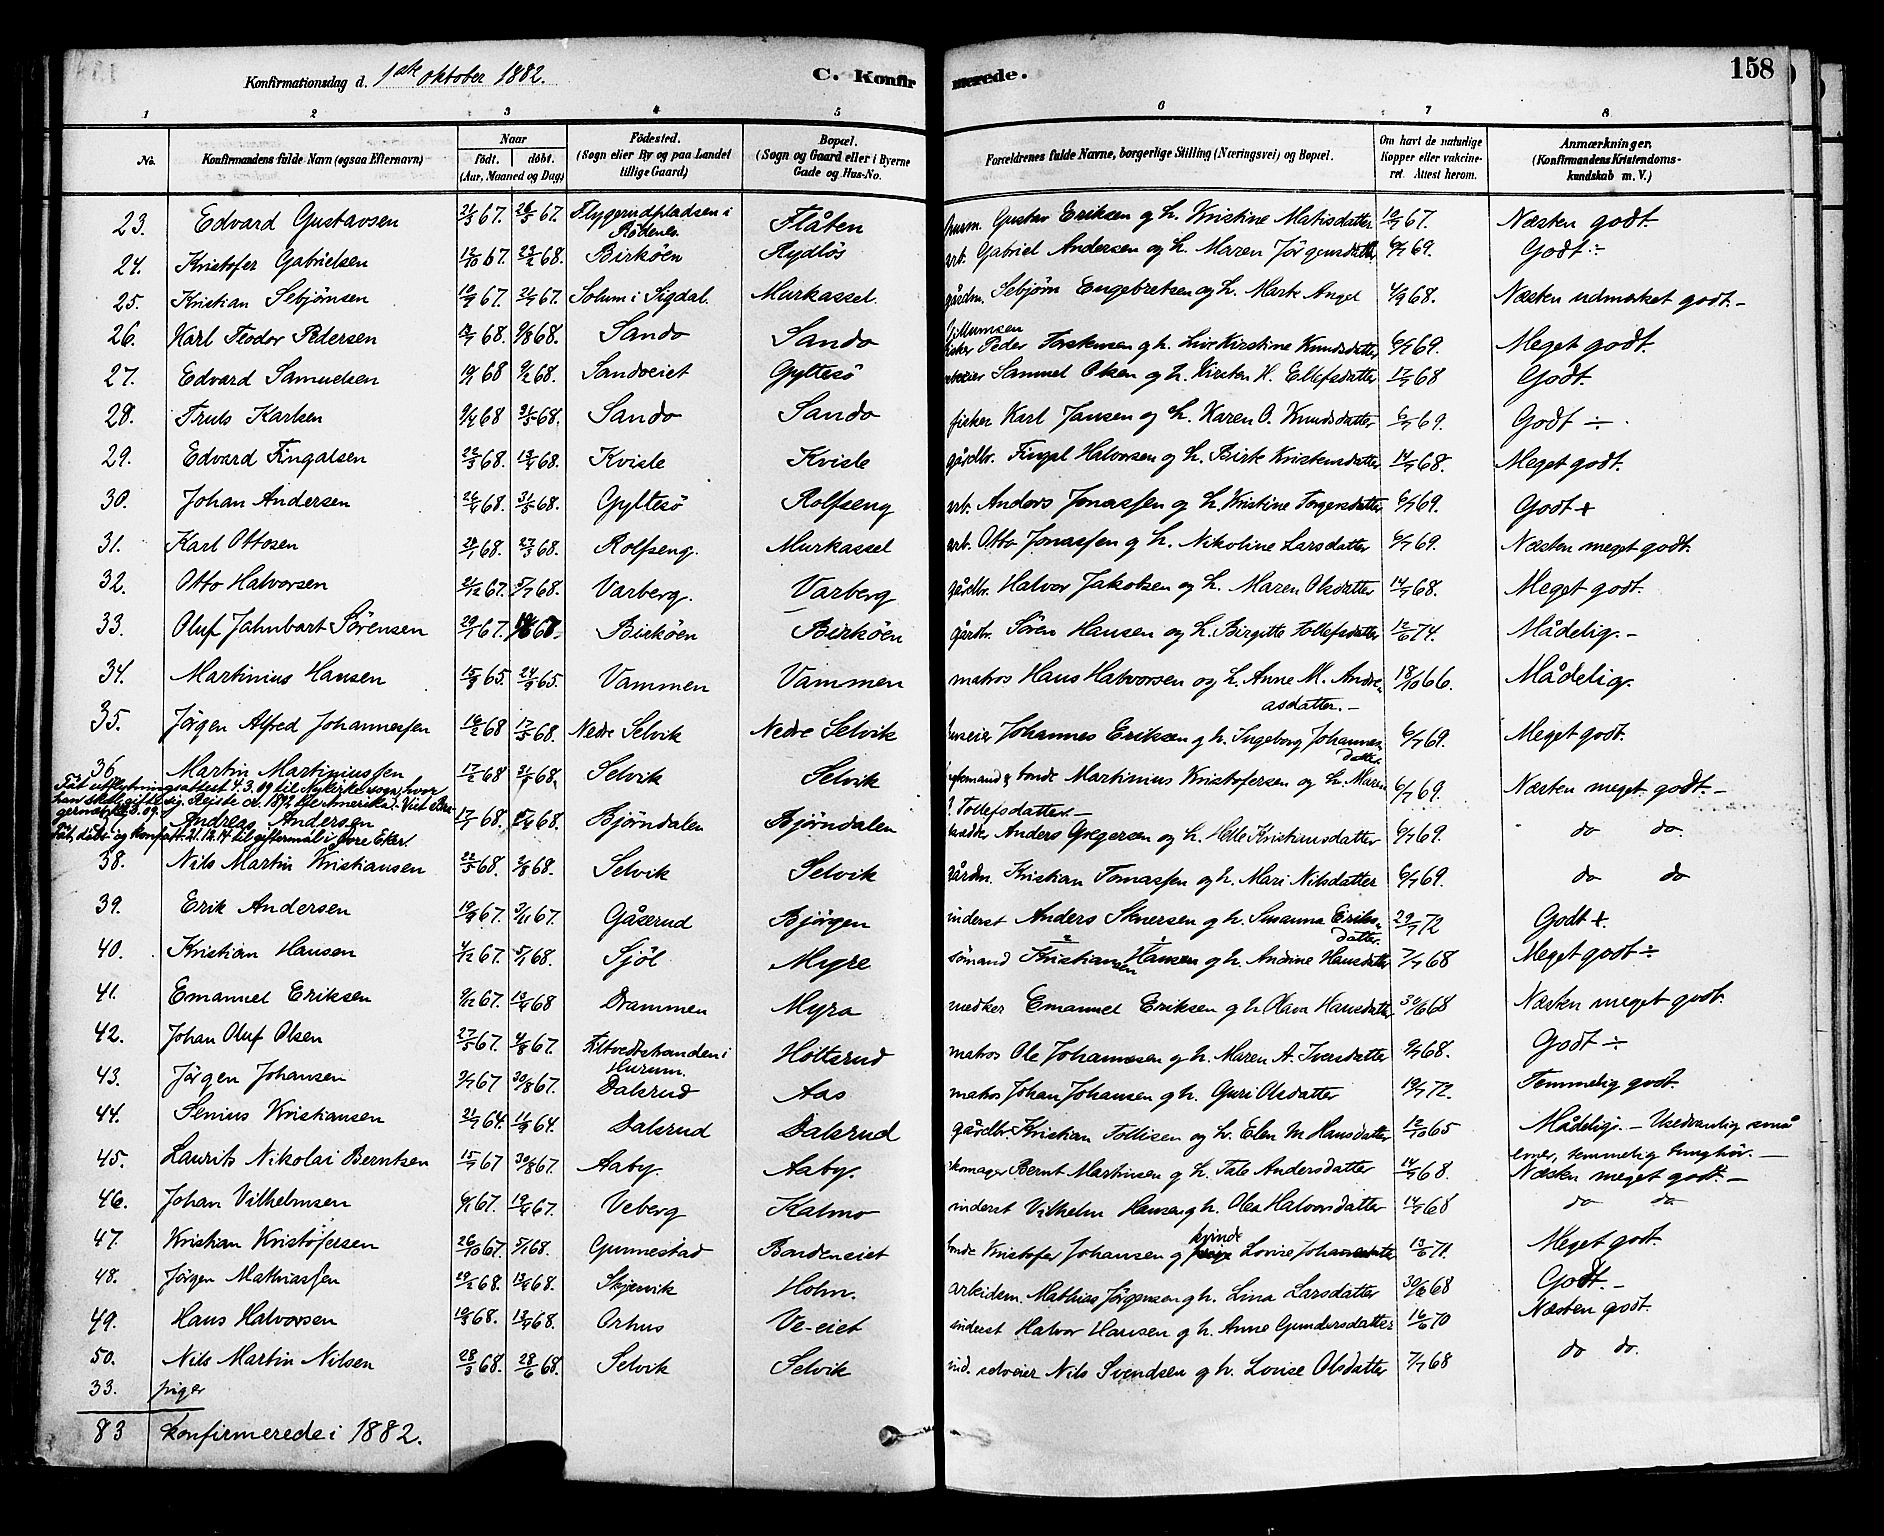 158
Konfirmationsdag d. 1ste oktober 1882. C. Konfirmerede.
1 2 3 4 5 6 7 8
No. Konfirmandens fulde Navn (ogsaa Efternavn) Naar født. døbt. (Aar, Maaned og Dag) Födested. (Sogn eller By og paa Landet tillige Gaard) Bopæl. (Sogn og Gaard eller i Byerne Gade og Hus-No. Forældrenes fulde Navne, borgerlige Stilling (Næringsvei) og Bopæl. Om havt de naturlige Kopper eller vakcineret. Attest herom. Anmærkninger. (Konfirmandens Kristendomskundskab m. V.)
23. Edvard Gustavsen 67. 67. Flygerudpladsen i Rödenes Flåten husm. Gustav Eriksen og h. Kristine Matisdatter 67. Næsten godt.
24. Kristofer Gabrielsen 67. 68. Birköen Rydlös arb. Gabriel Andersen og h. Maren Jörgensdatter 69. Godt ÷
25. Kristian Sebjörnsen 67. 67. Solum i Sigdal. Murkassel. gårdm. Sebjörn Engebretsen og h. Marte Angel 4/9 68. Næsten udmærket godt. -
26. Karl Teodor Pedersen 68. 9/8 68. Sando Sando fisker Peder Torstensen g h. Live Kirstine Knudsdatter 6/7 69. Meget godt.
27. Edvard Samuelsen 68 9/2 68. Sandoeiet Gyltesö Samuel Olsen og h. Kirsten H. Ellefsdatter 17/7 68 Godt.
28. Truls Karlsen 9/4 68 31/5 68. Sando Sando fisker Karl Jansen og h. Karen O. Knudsdatter 6/7 69. Godt ÷
29. Edvard Fingalsen 22/3 68. 13/4 68. Kvisle Kvisle gårdbr. Fingal Halvorsen og h. Birte Kristensdatter 14/7 68. Meget godt.
30. Johan Andersen 26/4 68. 31/5 68. Gyltesö Rolfseng arb. Anders Jonassen og h. Kristine Torgersdatter 6/7 69. Godt +
31. Karl Ottosen 68. 27/3 68. Rolfseng. Murkassel arb. Otto Jonassen g h. Nikoline Larsdatter 6/7 69. Næsten meget godt.
32. Otto Halvorsen 21/12 67. 5/7 68. Varberg. Varberg gårdbr. Halvor Jakobsen og h. Maren Olsdatter 14/7 68. Meget godt.
33. Oluf Jahnbart Sörensen 20/1 67. 67. Birköen Birköen gårdbr. Sören Hansen og h. Birgitte Tollefsdatter 12/6 74. Mådelig. -
34. Martinius Hansen 15/8 65 24/9 65. Vammen Vammen matros Hans Halvorsen og h. Anne M. Andreasdatter. - 18/10 66. Mådelig.
35. Jörgen Alfred Johannessen 16/2 68 17/5 68. Nedre Selvik Nedre Selvik huseier Johannes Eriksen g h. Ingeborg Johannesdatter 6/7 69. Meget godt.
36. Martin Martiniussen 17/2 68 31/5 68. Selvik Selvik Martinius Kristofersen og h. Maren Tollefsdatter. - 6/7 69. Næsten meget godt. -
Fåt utflytningsattest 4.3.09 til Nykirke sogn, hvor han skal gifte sig. Reiste ca. 1892 til Amerika.
Andreas Andersen 17/1 68. 68. Bjørndalen Bjørndalen Anders Gregersen og h. Helle Kristiansdatter 6/7 69. do do.
Fåt dåbs- og konf.att. 21.12.14 til giftermål i Övre Eker.
38. Nils Martin Kristiansen 22/5 68. 2/8 68. Selvik Selvik gårdm. Kristian Tomassen og h. Mari Nilsdatter 6/7 69. do do
39. Erik Andersen 19/9 67. 3/11 67. Gåserud Bjørgen inderst Anders Skversen g h. Susanna Eriksdatter. 29/7 72 Godt +.
40. Kristian Hansen 4/12 67. 5/1 68. Sjöl Myre sömand Kristiansen Hans g h. Andine Hansdatter 7/7 68 Meget godt ÷
41. Emanuel Eriksen 9/12 67. 13/4 68 Drammen Myra snedker Emanuel Eriksen g h. Olava Hansdatter 30/6 68 Næsten meget godt.
42. Johan Oluf Olsen 27/5 67. 4/8 67. Filtvedtstranden i Hurum. Holtsrud matros Ole Johannesen g h. Maren A. Iversdatter 9/7 68. Godt ÷
43. Jörgen Johansen 3/7 67 30/8 67. Dalsrud Aas matros Johan Johansen g h. Guri Olsdatter 19/7 72. Temmelig godt.
44. Senius Kristiansen 21/7 64. 11/9 64. Dalsrud Dalsrud gårdbr. Kristian Tollisen og h. Elen M Hansdatter 12/10 65 Mådelig. - Usedvanlig små evner, temmelig tunghör. -
45. Laurits Nikolai Berntsen 15/7 67 30/8 67. Aaby. Aaby. skomager Bernt Martinsen g h. Tale Andersdatter 14/7 68. Næsten meget godt. -
46. Johan Vilhelmsen 67. 19/4 67. Veberg Kalmo inderst Vilhelm Hansen g h. Olea Halvorsdatter 14/7 68 do do
47. Kristian Kristofersen 26/10 67. 5/1 68. Gunnestad Bordeneiet Kristofer Johansen g kvinde Lovise Johannesdatter 13/6 71. Meget godt.
48. Jörgen Mathiassen 29/2 68. 13/4 68. Skjervik Holm. arbeidsm. Mathias Jörgensen g h. Lina Larsdatter 30/6 68 Godt. -
49. Hans Halvorsen 68. 13/4 68. Orhus Ve-eiet inderst Halvor Hansen g h. Anne Gundersdatter 16/6 70 Næsten godt.
50. Nils Martin Nilsen 28/3 68. 28/6 68. Selvik Selvik ind. selveier Nils Svendsen g h. Lovise Olsdatter 7/7 68 do do.
33. piger
83 konfirmerede i 1882.